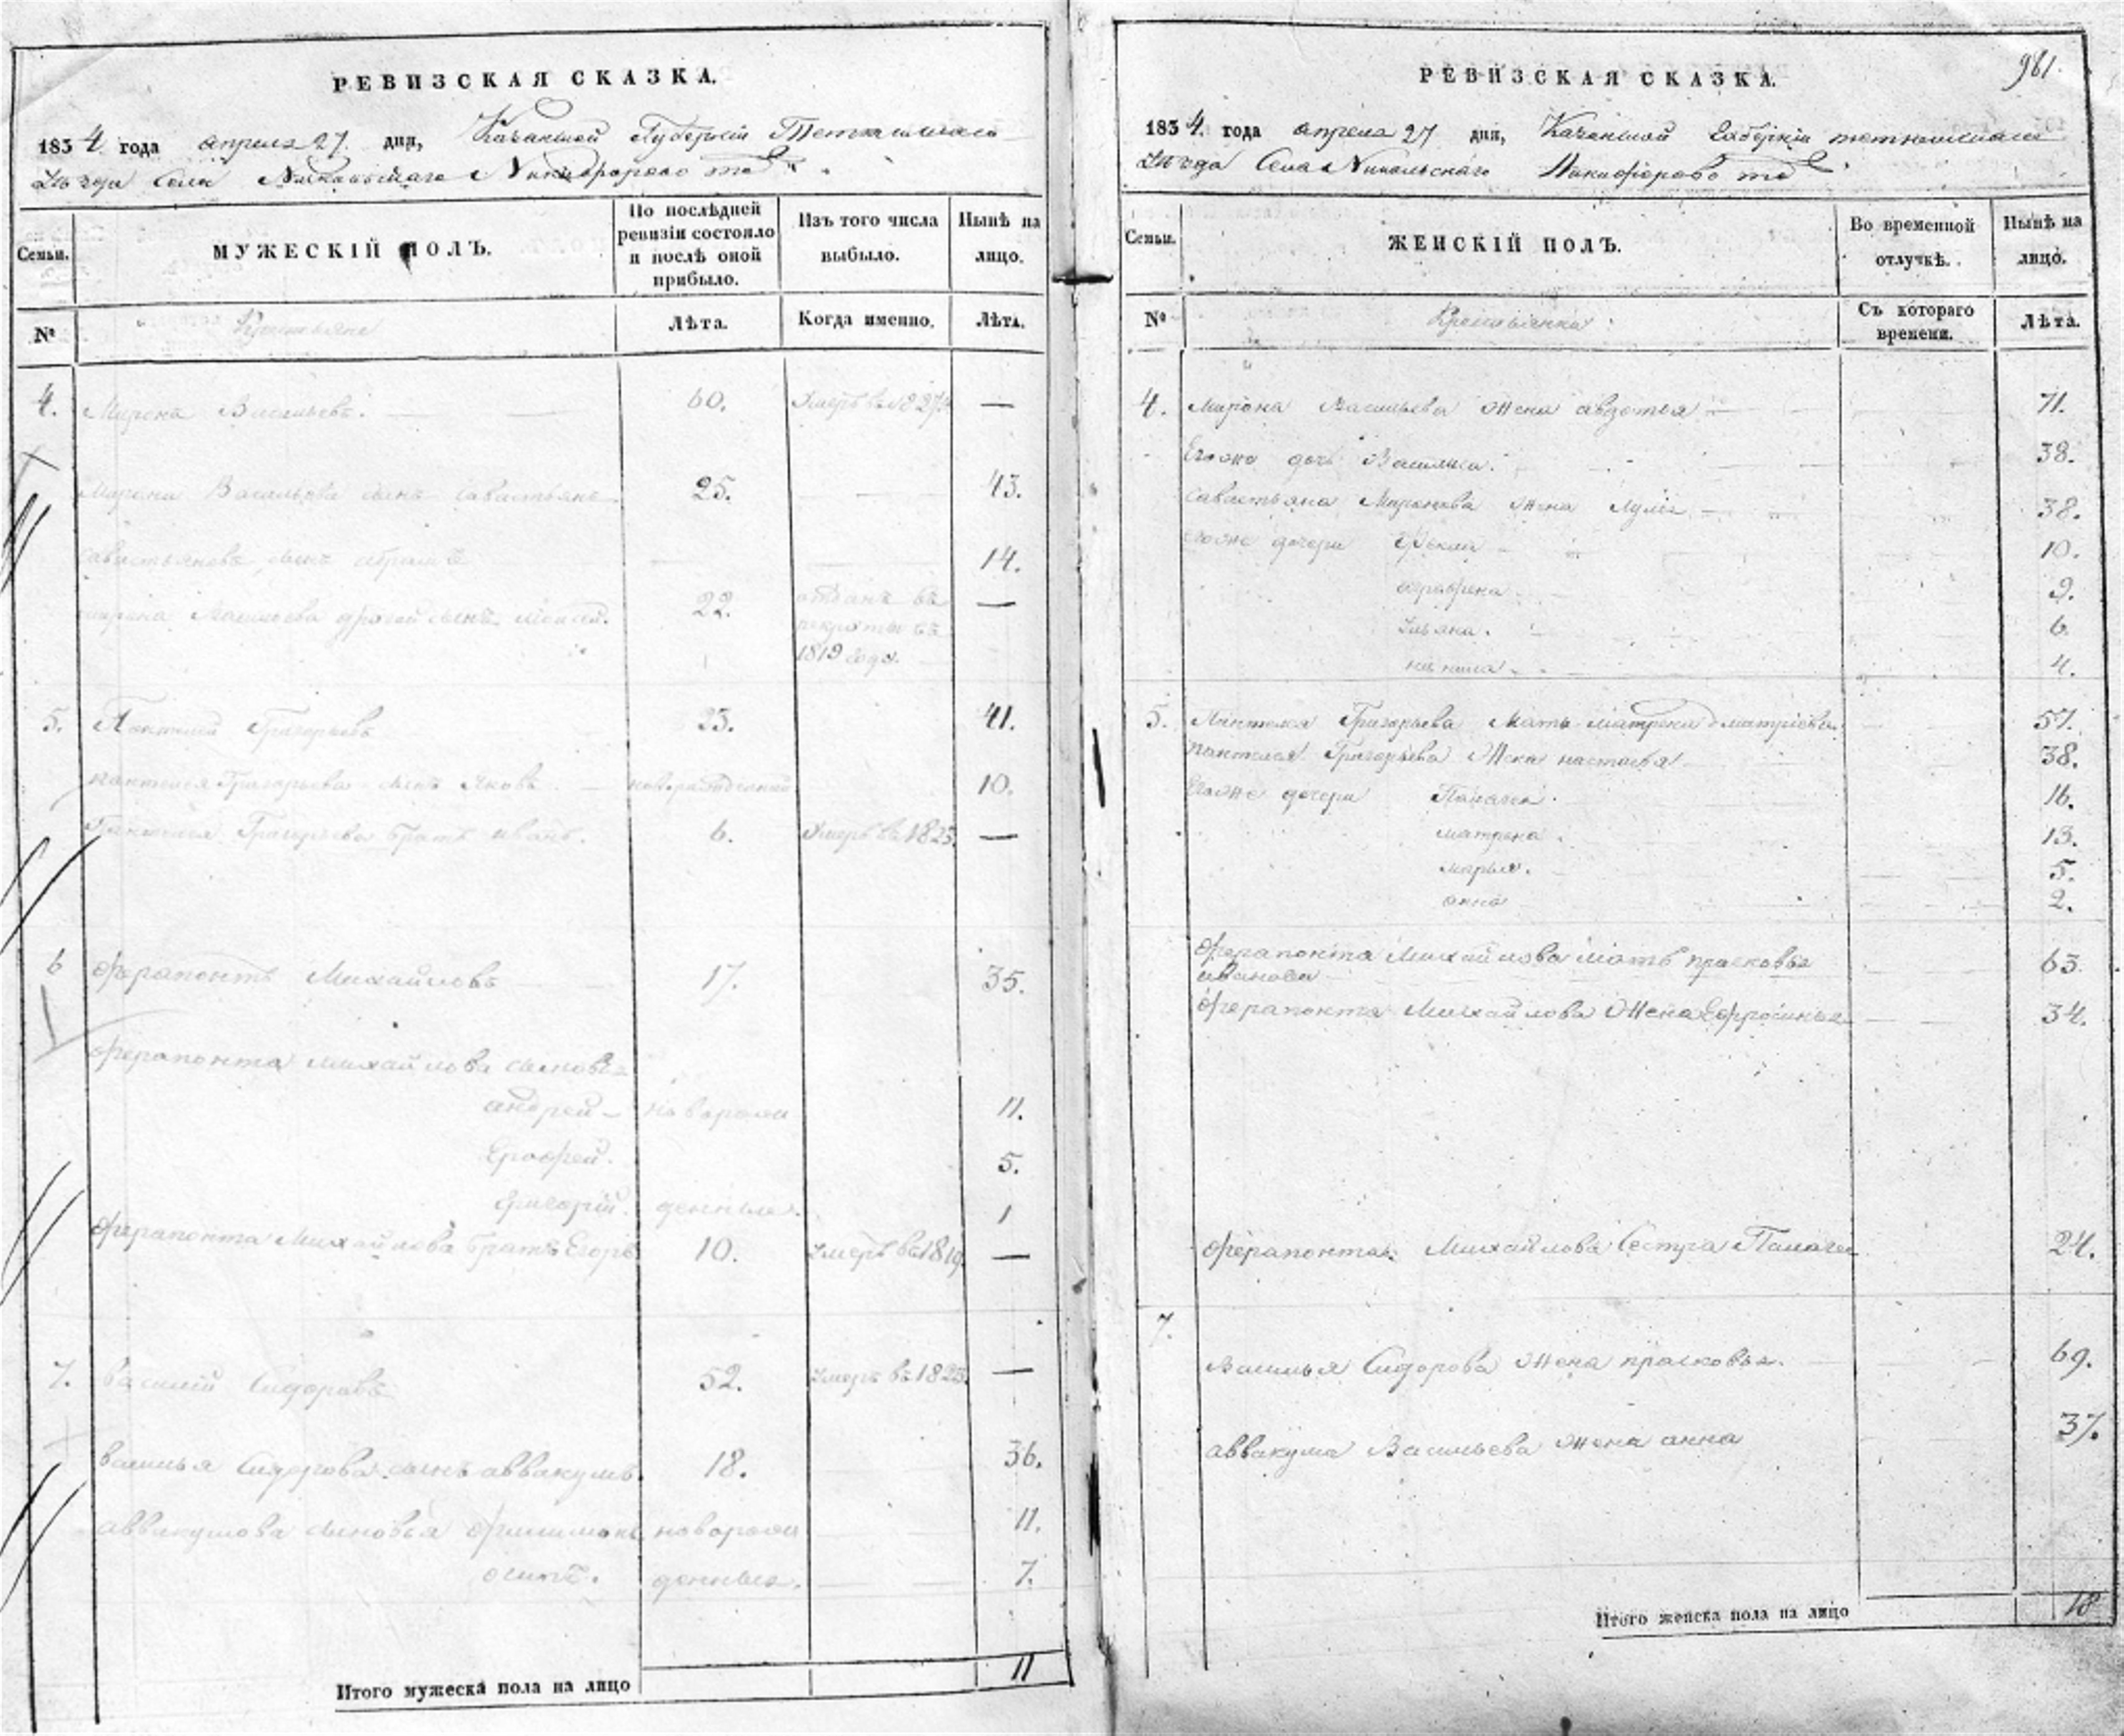 РЕВИЗСКАЯ СКАЗКА.
1834 года апреля 27 дня, Казанской Губернiи Тетюшскаго
Уѣзда Села Никольскаго Никифорово тожъ
Семьи.
МУЖЕСКІЙ ПОЛЪ.
По послѣдней ревизіи состояло и послѣ оной прибыло.
Изъ того числа выбыло.
Нынѣ на лицо.
№
Крестьяне
Лѣта.
Когда именно.
Лѣта.
4. Мирона Васильевъ. 60. Умеръ въ 1827 —
Мирона Васильева сынъ Савастьянъ 25. — 43.
Савастьяновъ сынъ абрамъ 14.
мирона Васильева другой сынъ 22. отданъ въ —
рекруты въ
1819 году.
5. Пантелей Григорьевъ 23. 41.
пантелея Григорьева сынъ Яковъ новорожденный 10.
Пантелея Григорьева братъ иванъ. 6. Умеръ въ 1825. —
6 Ферапонтъ Михайловъ 17. 35.
Ферапонта михайлова сыновья
андрей — новорож 11.
Ерофей. 5.
Григорій. денные. 1
Ферапонта Михайлова братъ Егоръ 10. Умеръ въ 1819. —
7. Василій Сидоровъ 52. Умеръ въ 1825. —
василья Сидорова сынъ аввакумъ. 18. 36.
аввакумова сыновья филимонъ новорож 11.
осипъ. денныя. 7.
Итого мужеска пола на лицо 11
981.
РЕВИЗСКАЯ СКАЗКА.
1834. года апреля 27 дня, Казанской Губерніи тетюшскаго
Уѣзда Села Никольскаго Никифорово тожъ
Семьи.
ЖЕНСКІЙ ПОЛЪ.
Во временной отлучкѣ.
Нынѣ на лицо.
№
Крестьянки
Съ котораго времени.
Лѣта.
4. Мирона Васильева жена авдотья 71.
Егоже дочь Василиса. 38.
Савастьяна Миронова жена 38.
егоже дочери Фекла 10.
аграфена 9.
Ульяна. 6.
4.
5. Пантелея Григорьева Мать матрена дматріева 57.
пантелея Григорьева Жена настасья 38.
Егоже дочери Палагея. 16.
матрена. 13.
марья. 5.
анна 2.
Ферапонта Михайлова мать прасковья 63.
иванова
Ферапонта Михайлова Жена Ефросинья 34.
Ферапонта Михайлова Сестра Палагея 24.
7.
Василья Сидорова Жена прасковья. 69.
аввакума Васильева жена анна 37.
Итого женска пола на лицо 18